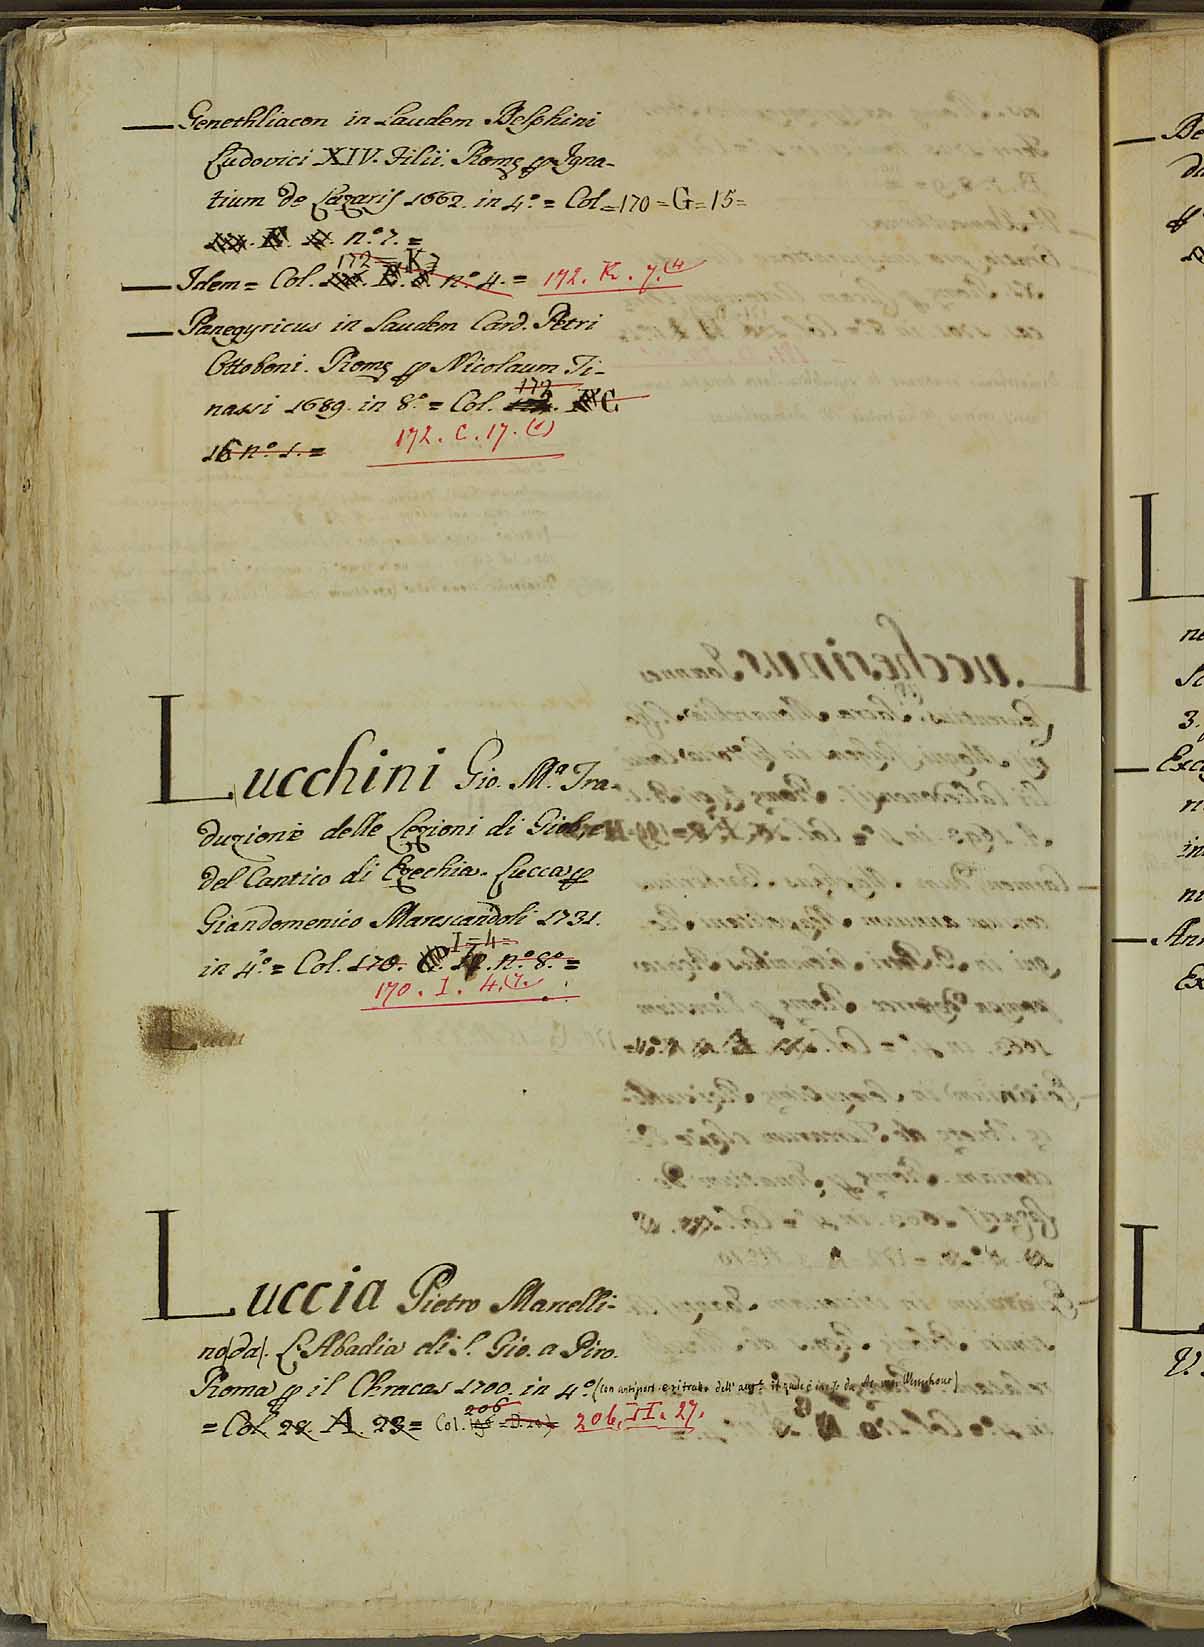 — Genethliacon in Laudem Delphini
Ludovici XIV. Filii. Romę ꝑ Igna-
tium de Lazaris 1662. in 4.º = Col = 170 = G = 15 =
n.º 7. =
172 = K 7
— Idem = Col. n.º 4. = 172. K. 7. (4
— Panegyricus in Laudem Card. Petri
Ottoboni. Romę ꝑ Nicolaum Ti-
nassi 1689. in 8.º = Col. 172 C
16 n.º 1. = 172. C. 17. (1)
Lucchini Gio. M.ª Tra-
duzione delle Lezioni di Giobbe
del Cantico di Ezechia. Lucca ꝑ
Giandomenico Marescandoli 1731.
I = 4 =
in 4.º = Col. 170. n.º 8.º =
170. I. 4. (7.
Luccia Pietro Marcelli-
no (da). L'Abadia di S. Gio. a Piro.
Roma ꝑ il Chracas 1700. in 4.º (con antiport. e ritratto dell' aut.
206
= Col. 28. A. 23 = Col. 206. II. 27.